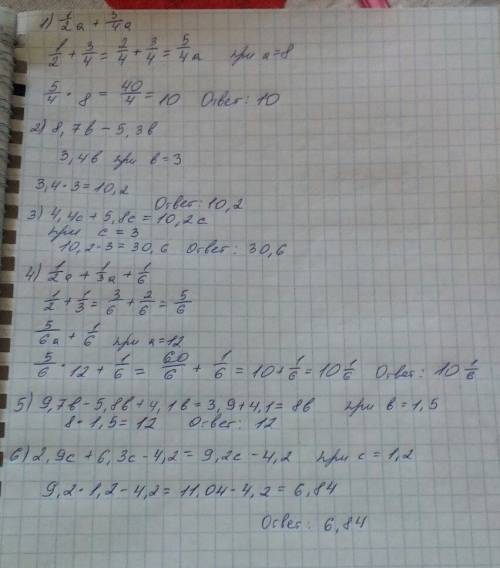 1) 1/2 a + 3/4 a
1/2 + 3/4 = 2/4 + 3/4 = 5/4 a при a=8
5/4 · 8 = 40/4 = 10 Ответ: 10
2) 8,7в - 5,3в
3,4в при в=3
3,4·3=10,2
Ответ: 10,2
3) 4,4с + 5,8с = 10,2с
при с = 3
10,2·3=30,6 Ответ: 30,6
4) 1/2 a + 1/3 a + 1/6
1/2 + 1/3 = 3/6 + 2/6 = 5/6
5/6 a + 1/6 при a=12
5/6 · 12 + 1/6 = 60/6 + 1/6 = 10 + 1/6 = 10 1/6 Ответ: 10 1/6
5) 9,7в - 5,8в + 4,1в = 3,9 + 4,1 = 8в при в = 1,5
8 · 1,5 = 12 Ответ: 12
6) 2,9с + 6,3с - 4,2 = 9,2с - 4,2 при с = 1,2
9,2 · 1,2 - 4,2 = 11,04 - 4,2 = 6,84
Ответ: 6,84